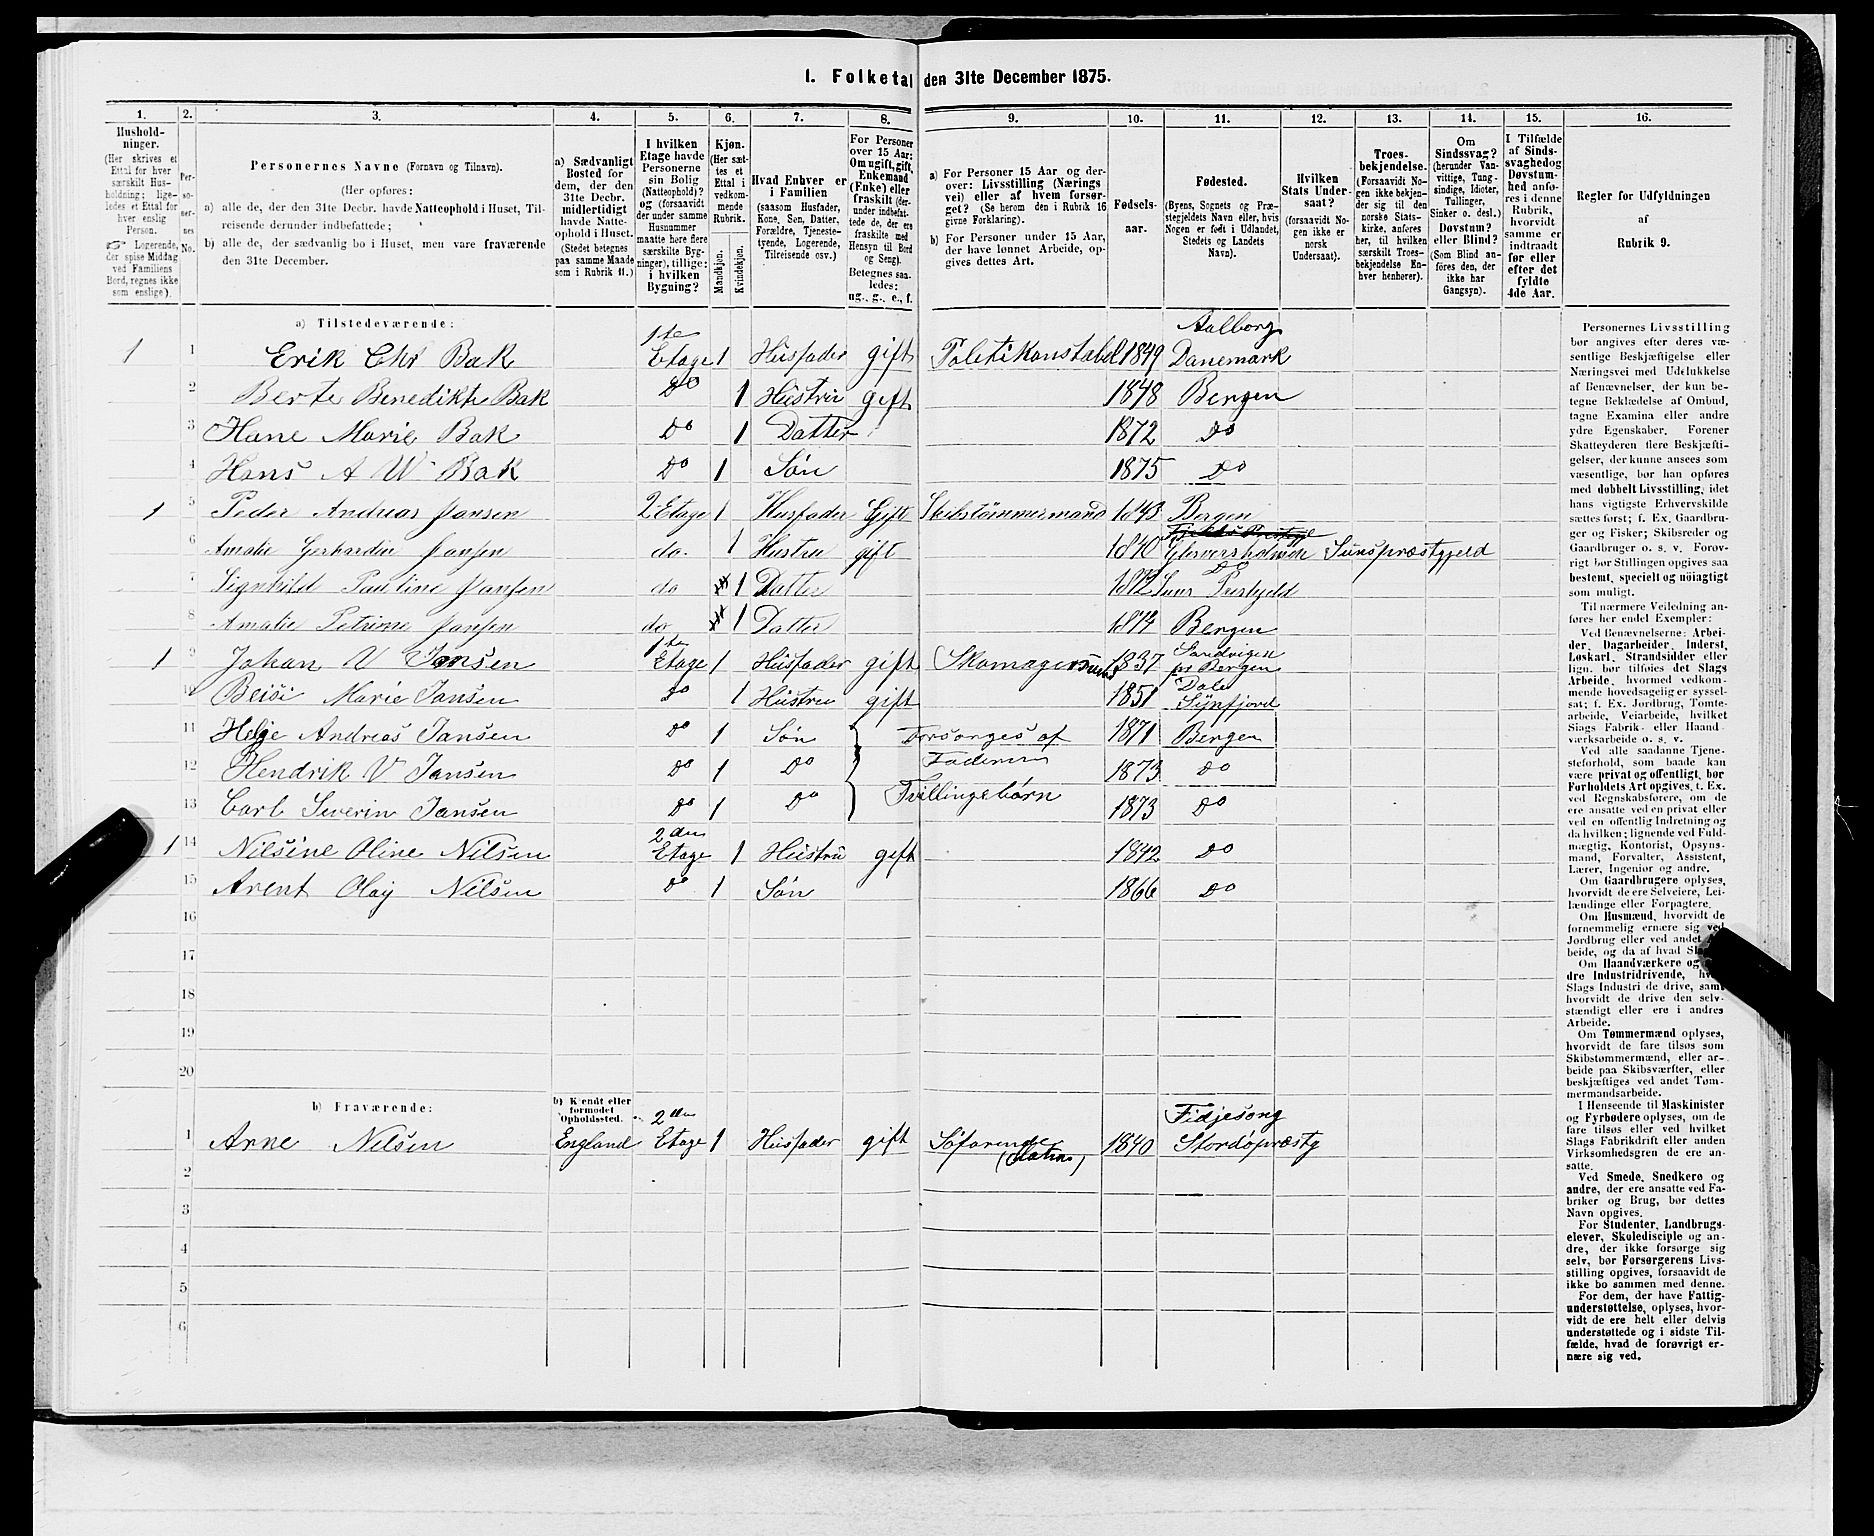 1. Folketal den 31te December 1875.
1. 2. 3. 4. 5. 6. 7. 8. 9. 10. 11. 12. 13. 14. 15. 16.
Hushold-
ninger.
(Her skrives et
Ettal for hver
særskilt Hus-
holdning; lige-
ledes et Ettal for
hver enslig
Person.
☞ Logerende,
der spise Middag
ved Familiens
Bord, regnes ikke
som enslige).
Per-
so-
ner-
nes
No.
Personernes Navne (Fornavn og Tilnavn).
(Her opføres:
a) alle de, der den 31te Decbr. havde Natteophold i Huset, Til-
reisende derunder indbefattede;
b) alle de, der sædvanlig bo i Huset, men vare fraværende
den 31te December.
a) Sædvanligt
Bosted for
dem, der den
31te Decbr.
midlertidigt
havde Natte-
ophold i Huset.
(Stedet betegnes
paa samme Maade
som i Rubrik 11.)
I hvilken
Etage havde
Personerne
sin Bolig
(Natteophold)?
og (forsaavidt
der under samme
Husnummer
maatte høre flere
særskilte Byg-
ninger), tillige:
i hvilken
Bygning?
Kjøn.
(Her sæt-
tes et
Ettal i
vedkom-
mende
Rubrik.
Mandkjøn.
Kvindekjøn.
Hvad Enhver er
i Familien
(saasom Husfader,
Kone, Søn, Datter,
Forældre, Tjeneste-
tyende, Logerende,
Tilreisende osv.)
For Personer
over 15 Aar:
Om ugift, gift,
Enkemand
(Enke) eller
fraskilt (der-
under indbefat-
tede de, der ere
fraskilte med
Hensyn til Bord
og Seng).
Betegnes saa-
ledes:
ug., g., e., f.
a) For Personer 15 Aar og der-
over: Livsstilling (Nærings
vei) eller af hvem forsør-
get? (Se herom den i Rubrik 16
givne Forklaring).
b) For Personer under 15 Aar,
der have lønnet Arbeide, op-
gives dettes Art.
Fødsels-
aar.
Fødested.
(Byens, Sognets og Præ-
stegjeldets Navn eller, hvis
Nogen er født i Udlandet,
Stedets og Landets
Navn).
Hvilken
Stats Under-
saat?
(forsaavidt No-
gen ikke er
norsk
Undersaat).
Troes-
bekjendelse.
(Forsaavidt No-
gen ikke bekjen-
der sig til den
norske Stats-
kirke, anføres
her, til hvilken
særskilt Troes-
bekjendelse En-
hver henhører).
Om
Sindssvag?
(herunder Van-
vittige, Tung-
sindige, Idioter,
Tullinger,
Sinker o. desl.)
Døvstum?
eller Blind?
(Som Blind an-
føres den, der
ikke har
Gangsyn).
I Tilfælde
af Sinds-
svaghed og
Døvstum-
hed anfø-
res i denne
Rubrik,
hvorvidt
samme er
indtraadt
før eller
efter det
fyldte
4de Aar.
Regler for Udfyldningen
af
Rubrik 9.
a) Tilstedeværende:
1 1 Erik Chr Bak 1te Etage 1 Husfader gift Poletikonstabel 1849 Aalborg Danemark
2 Berte Benedikte Bak Do 1 Hustru gift 1848 Bergen
3 Hane Marie Bak Do 1 Datter 1872 Do
4 Hans A W Bak Do 1 Søn 1875 Do
1 5 Peder Andreas Jansen 2 Etage 1 Husfader Gift Skibstømmermand 1843 Bergen
6 Amalie Gerhardine Jansen do. 1 Hustru gift 1840 Suns præstgjeld
7 Signhild Pauline Jansen do 1 Datter 1872 Do Suns Prestgjeld
8 Amalie Petrine Jansen do 1 Datter 1874 Bergen
1 9 Johan V Jansen 1te Etage 1 Husfader gift Skomagersvend 1837 Sandvigen pr Bergen
10 Marie Jansen Do 1 Hustru gift 1851 Dale Synfjord
11 Helge Andreas Jansen Do 1 Søn Forsørges af 1871 Bergen
12 Hendrik V Jansen Do 1 Do Faderen 1873 Do
13 Carl Severin Jansen Do 1 Do Tvillingebørn 1873 Do
1 14 Nilsine Oline Nilsen 2den Etage 1 Hustru gift 1842 Do
15 Arent Olaj Nilsen Do 1 Søn 1866 Do
16
17
18
19
20
b) Fraværende:
b) Kjendt eller
formodet
Opholdssted.
1 Arne Nilsen England 2den Etage 1 Husfader gift Søfarende (Matros) 1840 Fidjesong Stordøpræstg
2
3
4
5
6
Personernes Livsstilling
bør angives efter deres væ-
sentlige Beskjæftigelse eller
Næringsvei med Udelukkelse
af Benævnelser, der kun be-
tegne Beklædelse af Ombud,
tagne Examina eller andre
ydre Egenskaber. Forener
Skatteyderen flere Beskjæfti-
gelser, der kunne ansees som
væsentlige, bør han opføres
med dobbelt Livsstilling, idet
hans vigtigste Erhvervskilde
sættes først; f. Ex. Gaardbru-
ger og Fisker; Skibsreder og
Gaardbruger o. s. v. Forøv-
rigt bør Stillingen opgives saa
bestemt, specielt og nöiagtigt
som muligt.
Til nærmere Veiledning an-
føres her endel Exempler:
Ved Benævnelserne: Arbei-
der, Dagarbeider, Inderst,
Løskarl, Strandsidder eller
lign. bør tilføies det Slags
Arbeide, hvormed vedkom-
mende hovedsagelig er syssel-
sat; f. Ex. Jordbrug, Tomte-
arbeide, Veiarbeide, hvilket
Slags Fabrik- eller Haand-
værksarbeide o. s. v.
Ved alle saadanne Tjene-
steforhold, som baade kan
være privat og offentligt, bør
Forholdets Art opgives, t. Ex.
ved Regnskabsførere, om de
ere ansatte ved en privat eller
ved en offentlig Indretning og
da hvilken; lignende ved Fuld-
mægtig, Kontorist, Opsyns-
mand, Forvalter, Assistent,
Lærer, Ingeniør og andre.
Om Gaardbrugere oplyses,
hvorvidt de ere Selveiere, Lei-
lændinge eller Forpagtere.
Om Husmænd, hvorvidt de
fornemmelig ernære sig ved
Jordbrug eller ved andet Ar-
beide, og da af hvad Slags
Om Haandværkere og
dre Industridrivende,
Slags Industri de drive, samt
hvorvidt de drive den selv-
stændigt eller ere i andres
Arbeide.
Om Tømmermænd oplyses,
hvorvidt de fare tilsøs som
Skibstømmermænd, eller ar-
beide paa Skibsværfter, eller
beskjæftiges ved andet Tøm-
mermandsarbeide.
I Henseende til Maskinister
og Fyrbødere oplyses, om de
fare tilsøs eller ved hvilket
Slags Fabrikdrift eller anden
Virksomhedsgren de ere an-
satte.
Ved Smede, Snedkere og
andre, der ere ansatte ved Fa-
briker og Brug, bør dettes
Navn opgives.
For Studenter, Landbrugs-
elever, Skoledisciple og an-
dre, der ikke forsørge sig
selv, bør Forsørgerens Livs-
stilling opgives, forsaavidt de
ikke bo sammen med denne.
For dem, der have Fattig-
understøttelse, oplyses, hvor-
vidt de ere helt eller delvis
understøttede og i sidste Til-
fælde, hvad de forøvrigt er-
nære sig ved.